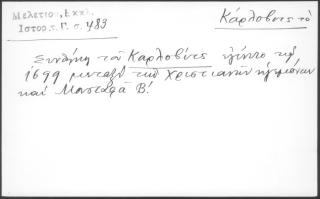 Μελετίου, Εκκλ.
Ιστορ. τ. Γ. σ. 483
Κάρλοβιτς τὸ
Συνθήκη τοῦ Καρλοβίτς ἐγένετο τῷ
1699 μεταξὺ τῶν Χριστιανῶν ἡγεμόνων
καὶ Μουσταφᾶ Β!